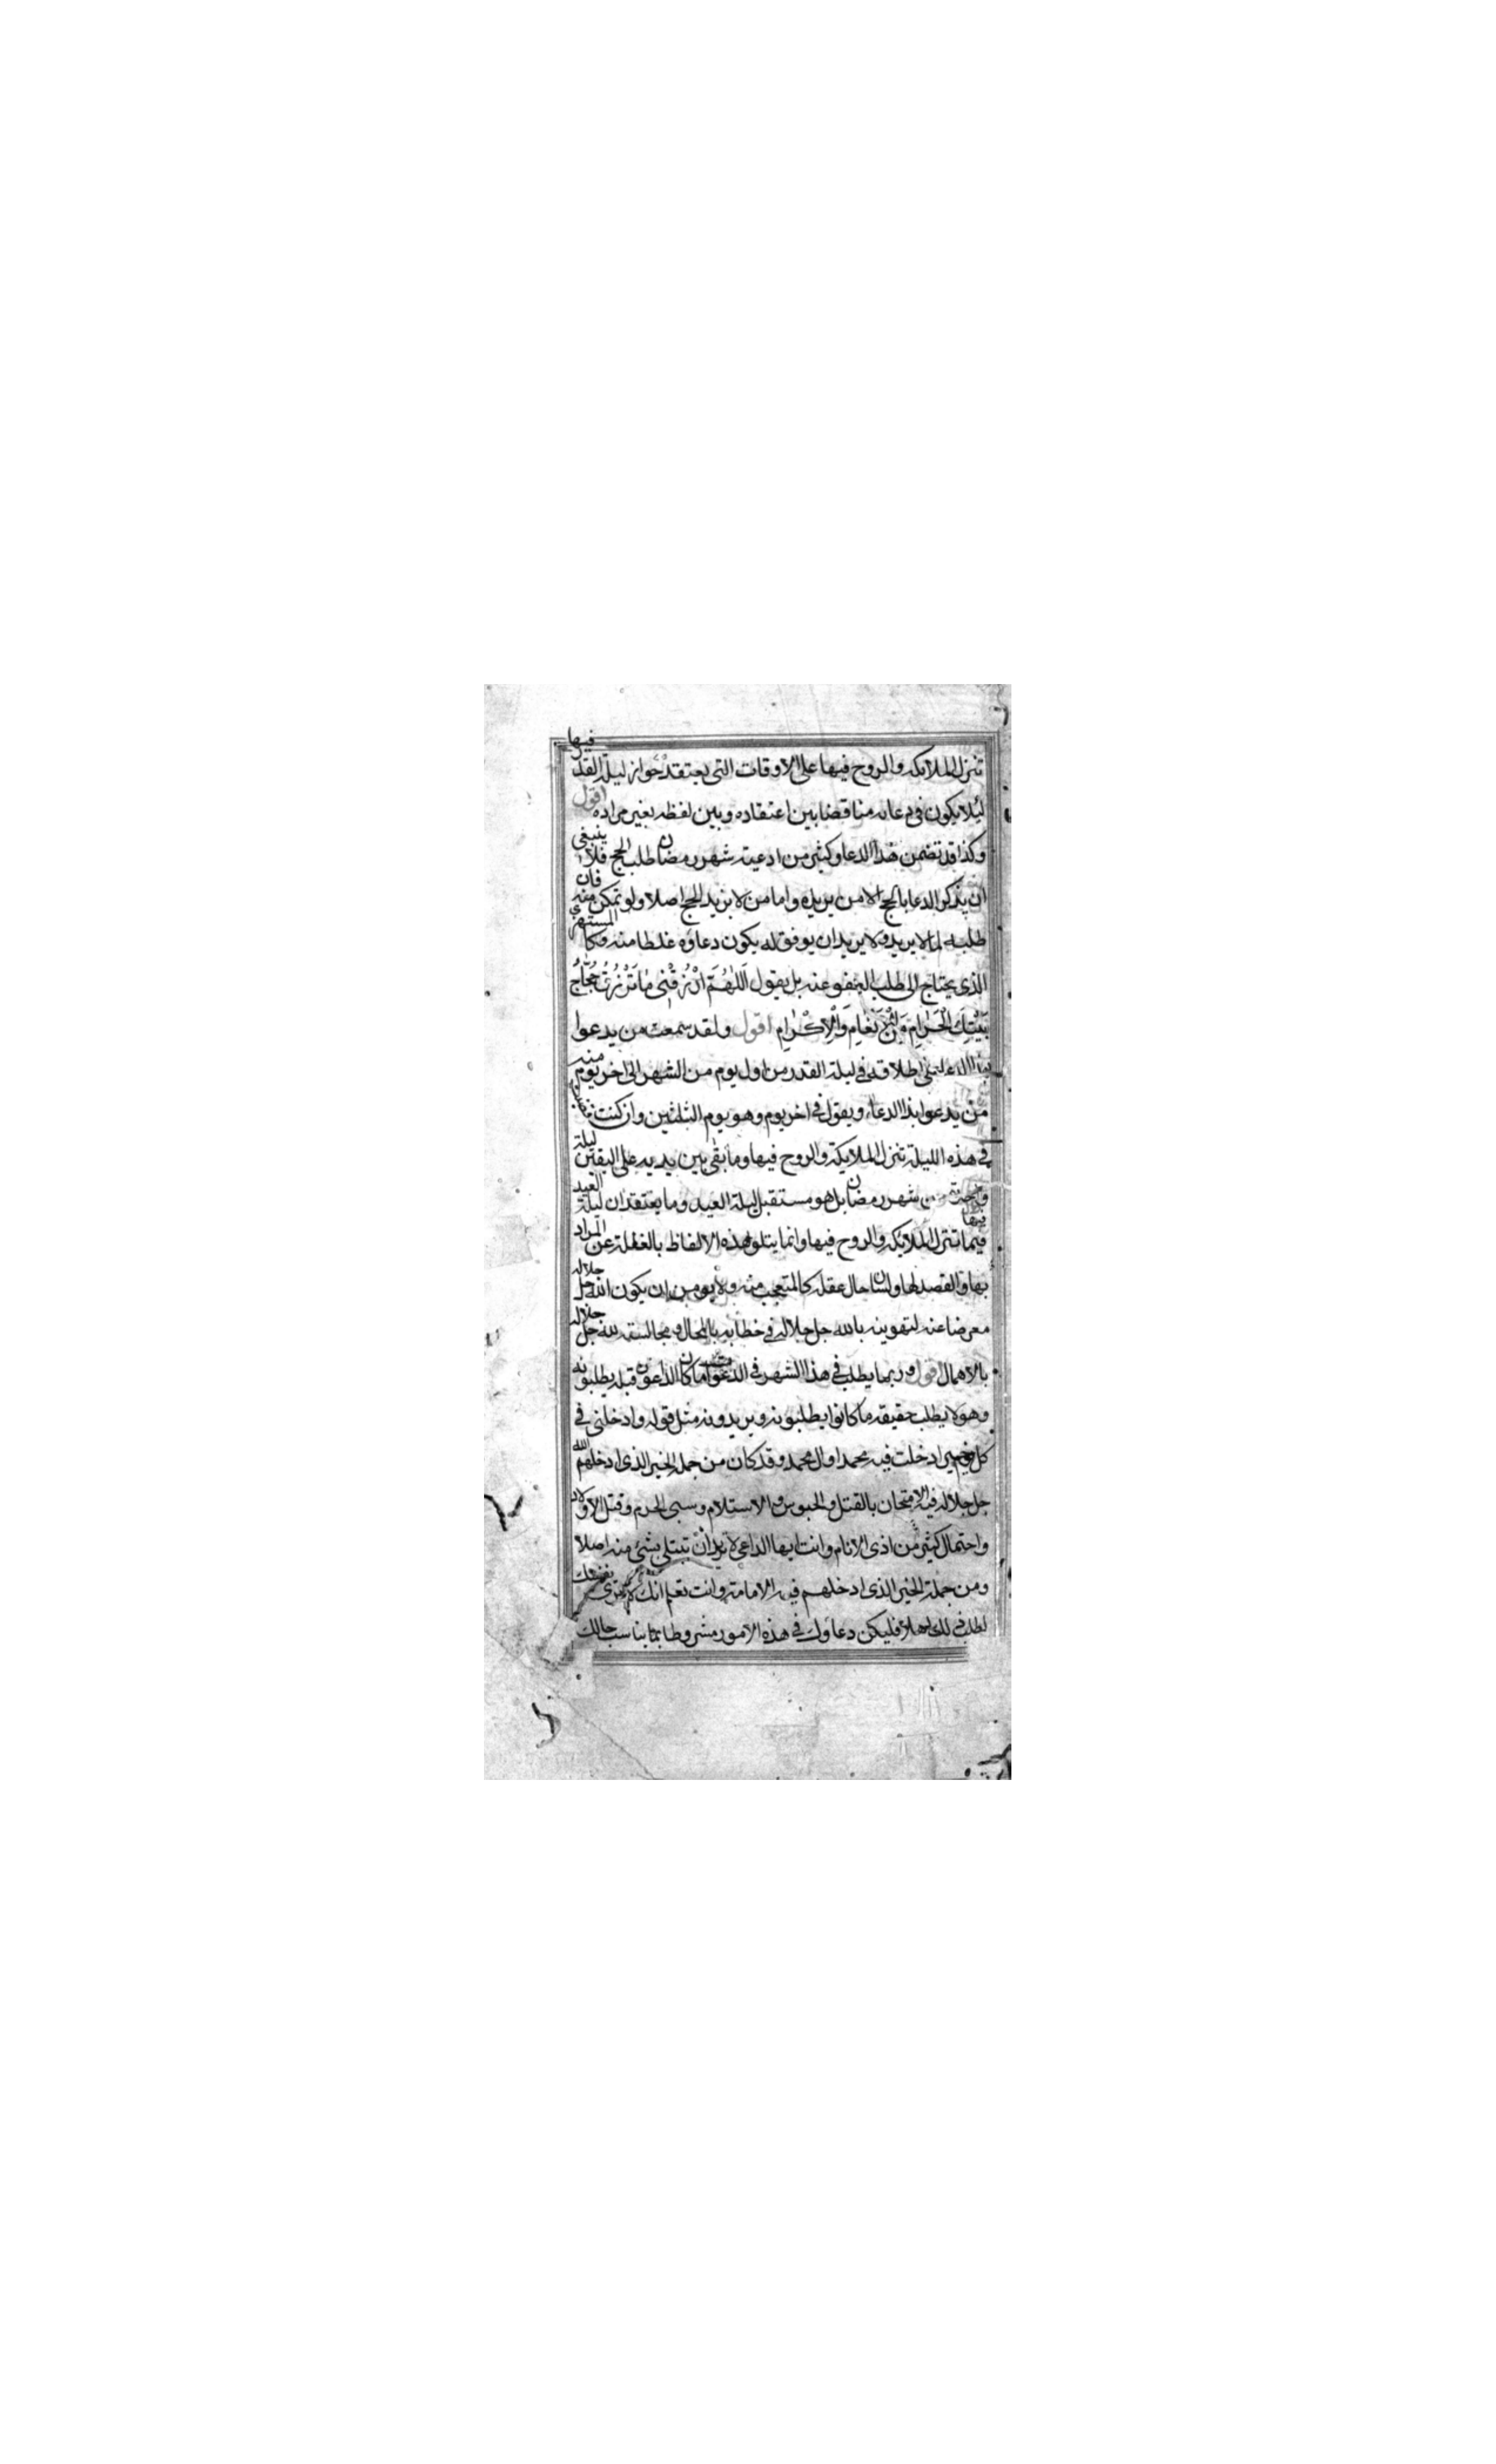 تنزل الملايكه والروح فيها على الاوقات التى يعتقد جواز ليلة القدر فيها
ليلا يكون فى دعائه مناقضا بين اعتقاده وبين لفظه بغير مراده اقول
وكذا قد تضمن هذا الدعا وكثير من ادعية شهر رمضان طلب الحج فلا ينبغى
ان يذكر الدعا بالحج الا من يريده واما من لا يريد الحج اصلا ولو تمكن منه فان
طلبه لما لا يريد ولا يريد ان يوفق له يكون دعاؤه غلطا منه وكالمستهزئ
الذى يحتاج الى طلب العفو عنه بل يقول اَللّٰهُمَّ ارْزُقْنى مٰا تَرْزُقُ حُجّٰاجَ
بَيْتِكَ الْحَرٰامِ مِنَ الْاِنْعٰامِ وَالْاِكْرٰامِ اقول ولقد سمعت من يدعوا
بهذا الدعا على اطلاقه فى ليلة القدر من اول يوم من الشهر الى اخر يوم منه
من يدعوا بهذا الدعاء ويقول فى اخر يوم وهو يوم الثلثين وان كنت
فى هذه الليلة تنزل الملايكة والروح فيها وما بقى بين يديه على اليقين ليلة
من شهر رمضان بل هو مستقبل ليلة العيد وما يعتقد ان ليلة العيد
فيما تنزل الملايكه والروح فيها وانما يتلو هذه الالفاظ بالغفلة عن المراد
بها والقصد لها ولسان حال عقله كالمتعجب منه ولا يومن ان يكون الله جل جلاله
معرضا عنه لتهوينه بالله جل جلاله فى خطابه بالمحال ومجالسته لله جل جلاله
بالاهمال اقول وربما يطلب فى هذا الشهر فى الدعوات ما كان الداعون قبله يطلبونه
وهو لا يطلب حقيقه ما كانوا يطلبونه ويريدونه مثل قوله وادخلنى فى
كل خير ادخلت فيه محمدا وال محمد وقد كان من جملة الخير الذى ادخلهم الله
جل جلاله فيه الامتحان بالقتل والحبوس والاستلام وسبى الحرم وقتل الاولاد
واحتمال كثير من اذى الانام وانت ايها الداعى لا تريد ان تبتلى بشئ منه اصلا
ومن جملة الخير الذى ادخلهم فيه الامامة وانت تعلم انك لا ترى نفسك
لطلب ذلك اهلا فليكن دعاؤك فى هذه الامور مشروطا بما يناسب حالك